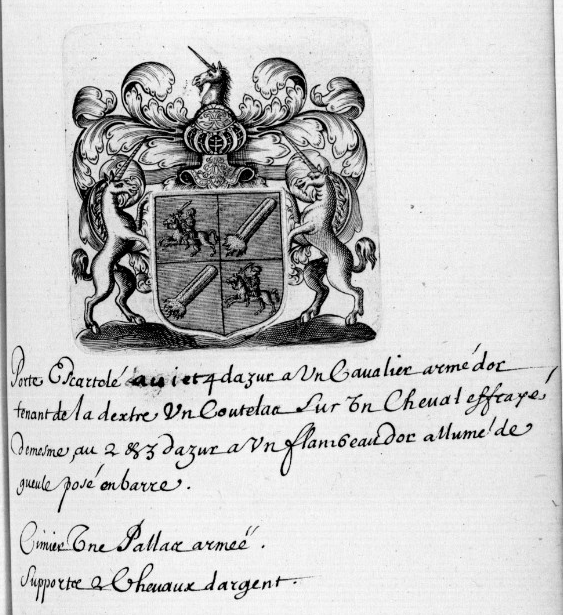 Porte Escartolé au 1 et 4 dazur a Vn Caualier armé dor
tenant de la dextre Vn Coutelac Sur Vn Cheual effrayé,
demesme, au 2 & 3 dazur a Vn flambeau dor allumé de
gueule posé en barre.
Cimier Vne Pallac armeé.
Supportc 2 Cheuaux dargent.